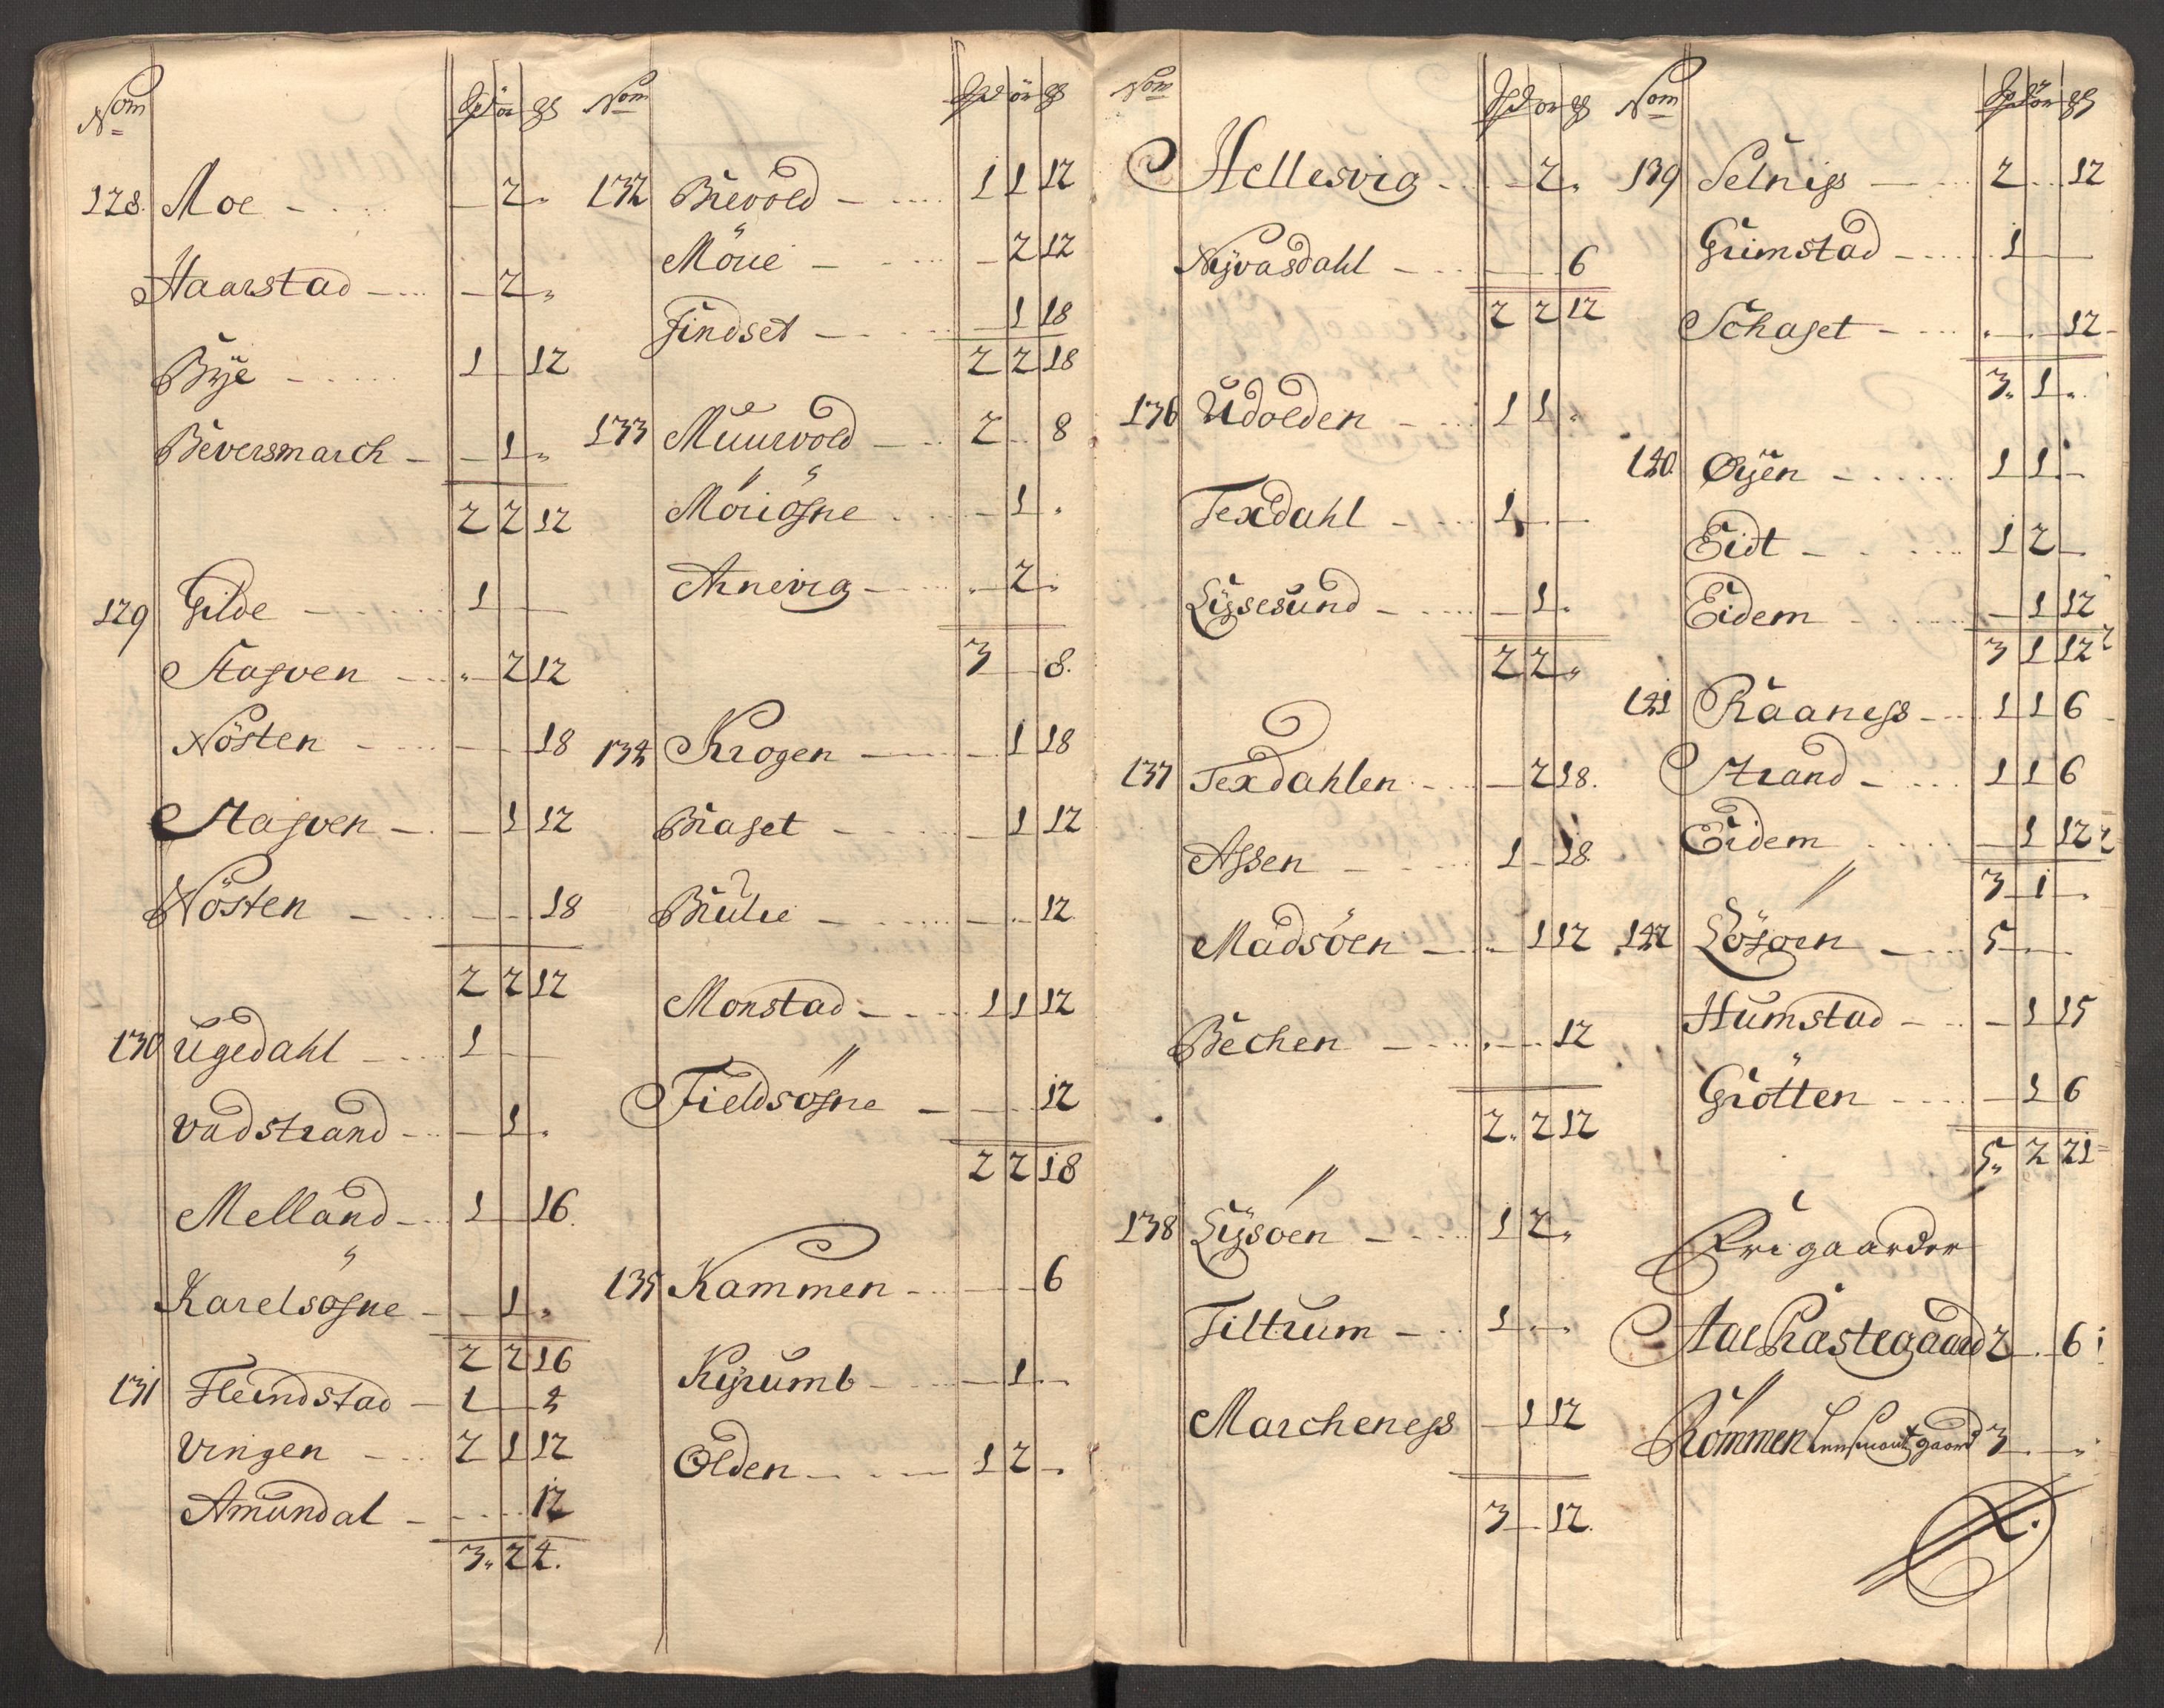 Nom Spd ör gs
128. Moe - 2 "
Haarstad - 2 "
Bÿe - 1 12
Beversmarch - 1 "
2 2 12
129 Gilde - 1
Stagven - 2 12
Nösten - 18
Stagven - 1 12
Nösten - 18
2 2 12
130 Ugedahl - 1
Vadstrand - 1 "
Melland - 1 16
Karelsögne - 1 "
2 2 16
131 Fleindstad - 1 4
Vingen - 2 1 12
Amundal - 12
3 " 2 4.
Nom Spd ör gs
132 Brevold - 1 1 12
Möue - 2 12
Findset - 1 18
2 2 18
133 Muurvold - 2 8
Möriögne - 1 "
Arnevig - 2 "
3 8.
134 Krogen - 1 18
Braset - 1 12
Brulie - 12
Monstad - 1 1 12
Fieldsögne - 12
2 2 18
135 Kammen - 6
Kÿrumb - 1
Olden - 1 2
Nom Spd ör gs
Hellesvig - 2 "
Nÿvasdahl - 6
2 2 12
136 Udolden - 1 1 "
Texdahl - 1
Lÿsesund - 1 "
2 2 "
137 Texdahlen - 2 18.
Assen - 1 18
Madsöen - 1 12
Bechen - 12
2 " 2 12
138 Lÿsöen - 1 2 "
Tiltrum - 1 "
Marcheness 1 12
3 12.
Nom Spd ör gs
139 Selniss - 2 12
Grimstad - 1
Schaset - 12
3. 1 "
140. Øÿen - 1 1
Eidt - 1 2
Eidem - 1 12
3 1 12
141 Raaness - 1 1 6
Strand - 1 1 6
Eidem - 1 12
3 1
142 Lösöen - 5
Humstad - 1 15
Grötten - 1 6
5 " 2 21
Frigaarder
Aae Præstegaard 2 6
Römmen Lensmants gaard 3 "